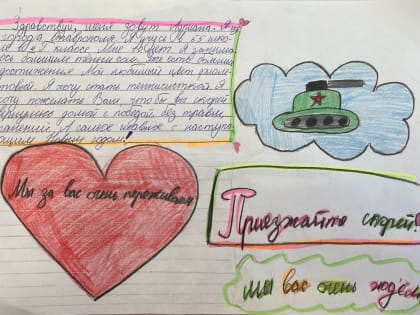 Здравствуй, меня зовут Я из
города Ставрополя. Я учусь в 65 шко-
ле в классе. Мне 10 лет. Я занима-
юсь большим теннисом. Уже есть большие
достижения. Мой любимый цвет фиоле-
товый. Я хочу стать теннисисткой. Я
хочу пожелать Вам, чтобы вы скорей
вернулись домой с победой без травм
ранений. А самое главное с наступа-
ющим Новым годом!
Мы за вас очень переживаем
Приезжайте скорей!
мы вас очень ждём